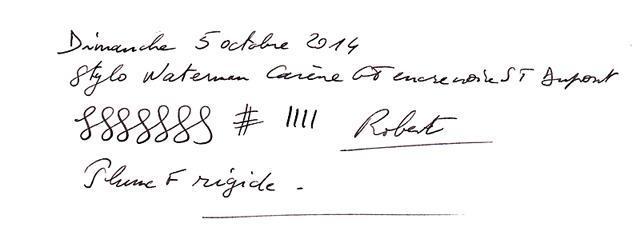 Dimanche 5 octobre 2014
Stylo Waterman Carène GT encre noire ST Dupont
# Robert
Plume F rigide .